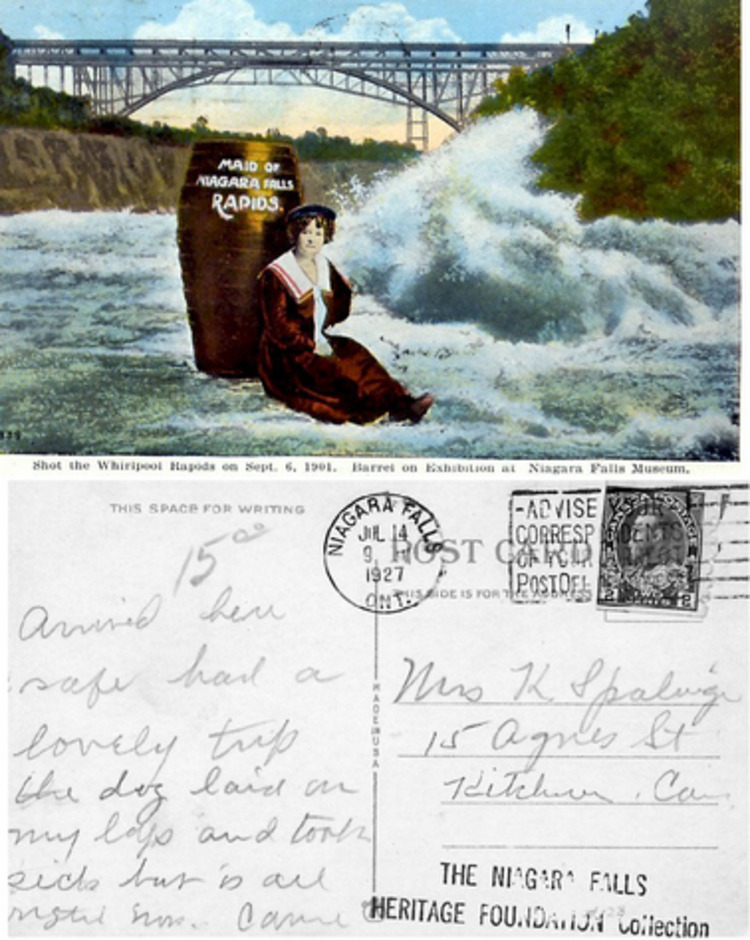 MAID OF
NIAGARA FALLS
RAPIDS.
Shot the Whirlpool Rapids on Sept. 6, 1901. Barrel on Exhibition at Niagara Falls Museum.
THIS SPACE FOR WRITING
15⁰⁰
Arrived here
safe had a
lovely trip
the dog laid on
my laps and took
sick but is all
now. Came
NIAGARA FALLS
JUL 14
9
1927
ONT.
ADVISE YOUR
CORRESP DENTS
OF YOUR
POST OF
POST CARD
THIS SIDE IS FOR THE ADDRESS
2 2
MADE IN USA
Mrs K
15 Agnes St
Kitchener. Can
THE NIAGARA FALLS
HERITAGE FOUNDATION Collection